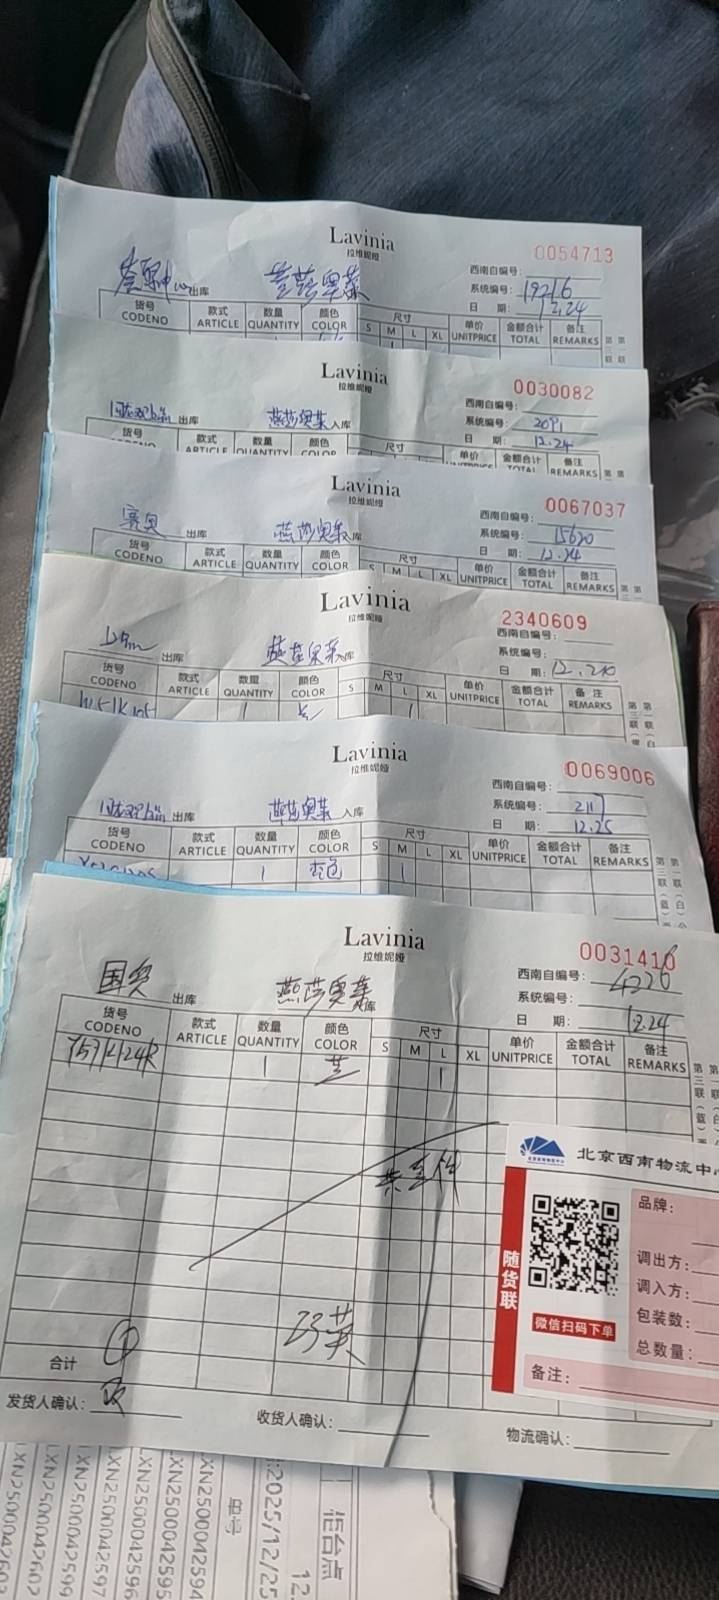 Lavinia
拉维妮娅
0054713
西南自编号：
出库 燕莎奥莱
系统编号： 19216
日 期： 12.24
货号 款式 数量 颜色 尺寸 单价 金额合计 备注
CODENO ARTICLE QUANTITY COLOR S M L XL UNITPRICE TOTAL REMARKS
Lavinia
拉维妮娅
0030082
西南自编号：
出库 燕莎奥莱 入库
系统编号： 2091
日 期： 12.24
货号 款式 数量 颜色 尺寸 单价 金额合计 备注
CODENO ARTICLE QUANTITY COLOR UNITPRICE TOTAL REMARKS
Lavinia
拉维妮娅
0067037
西南自编号：
赛奥 出库 燕莎奥莱 入库
系统编号： 15620
日 期： 12.24
货号 款式 数量 颜色 尺寸 单价 金额合计 备注
CODENO ARTICLE QUANTITY COLOR S M L XL UNITPRICE TOTAL REMARKS
Lavinia
拉维妮娅
2340609
西南自编号：
出库 燕莎奥莱 入库
系统编号：
日 期：
货号 款式 数量 颜色 尺寸 单价 金额合计 备注
CODENO ARTICLE QUANTITY COLOR S M L XL UNITPRICE TOTAL REMARKS
1
Lavinia
拉维妮娅
0069006
西南自编号：
出库 燕莎奥莱 入库
系统编号： 2117
日 期： 12.25
货号 款式 数量 颜色 尺寸 单价 金额合计 备注
CODENO ARTICLE QUANTITY COLOR S M L XL UNITPRICE TOTAL REMARKS
1 杏色 1
Lavinia
拉维妮娅
0031410
西南自编号： 4226
国奥 出库 燕莎奥莱 入库
系统编号：
日 期： 12.24
货号 款式 数量 颜色 尺寸 单价 金额合计 备注
CODENO ARTICLE QUANTITY COLOR S M L XL UNITPRICE TOTAL REMARKS
Y571K124R 1 兰 1
北京西南物流中心
随货联
品牌：
调出方：
调入方：
包装数：
总数量：
微信扫码下单
备注：
合计 ①
发货人确认：
收货人确认：
物流确认：
柜台点
2025/12/25
XN2500042594
XN2500042595
XN2500042596
XN2500042597
XN2500042599
XN2500042602
XN2500042603